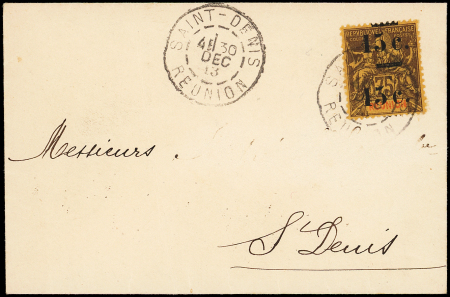 SAINT-DENIS
4E 30
DEC
13
REUNION
REPUBLIQUE FRANCAISE
15 c.
75
15 c.
REUNION
Messieurs
St Denis